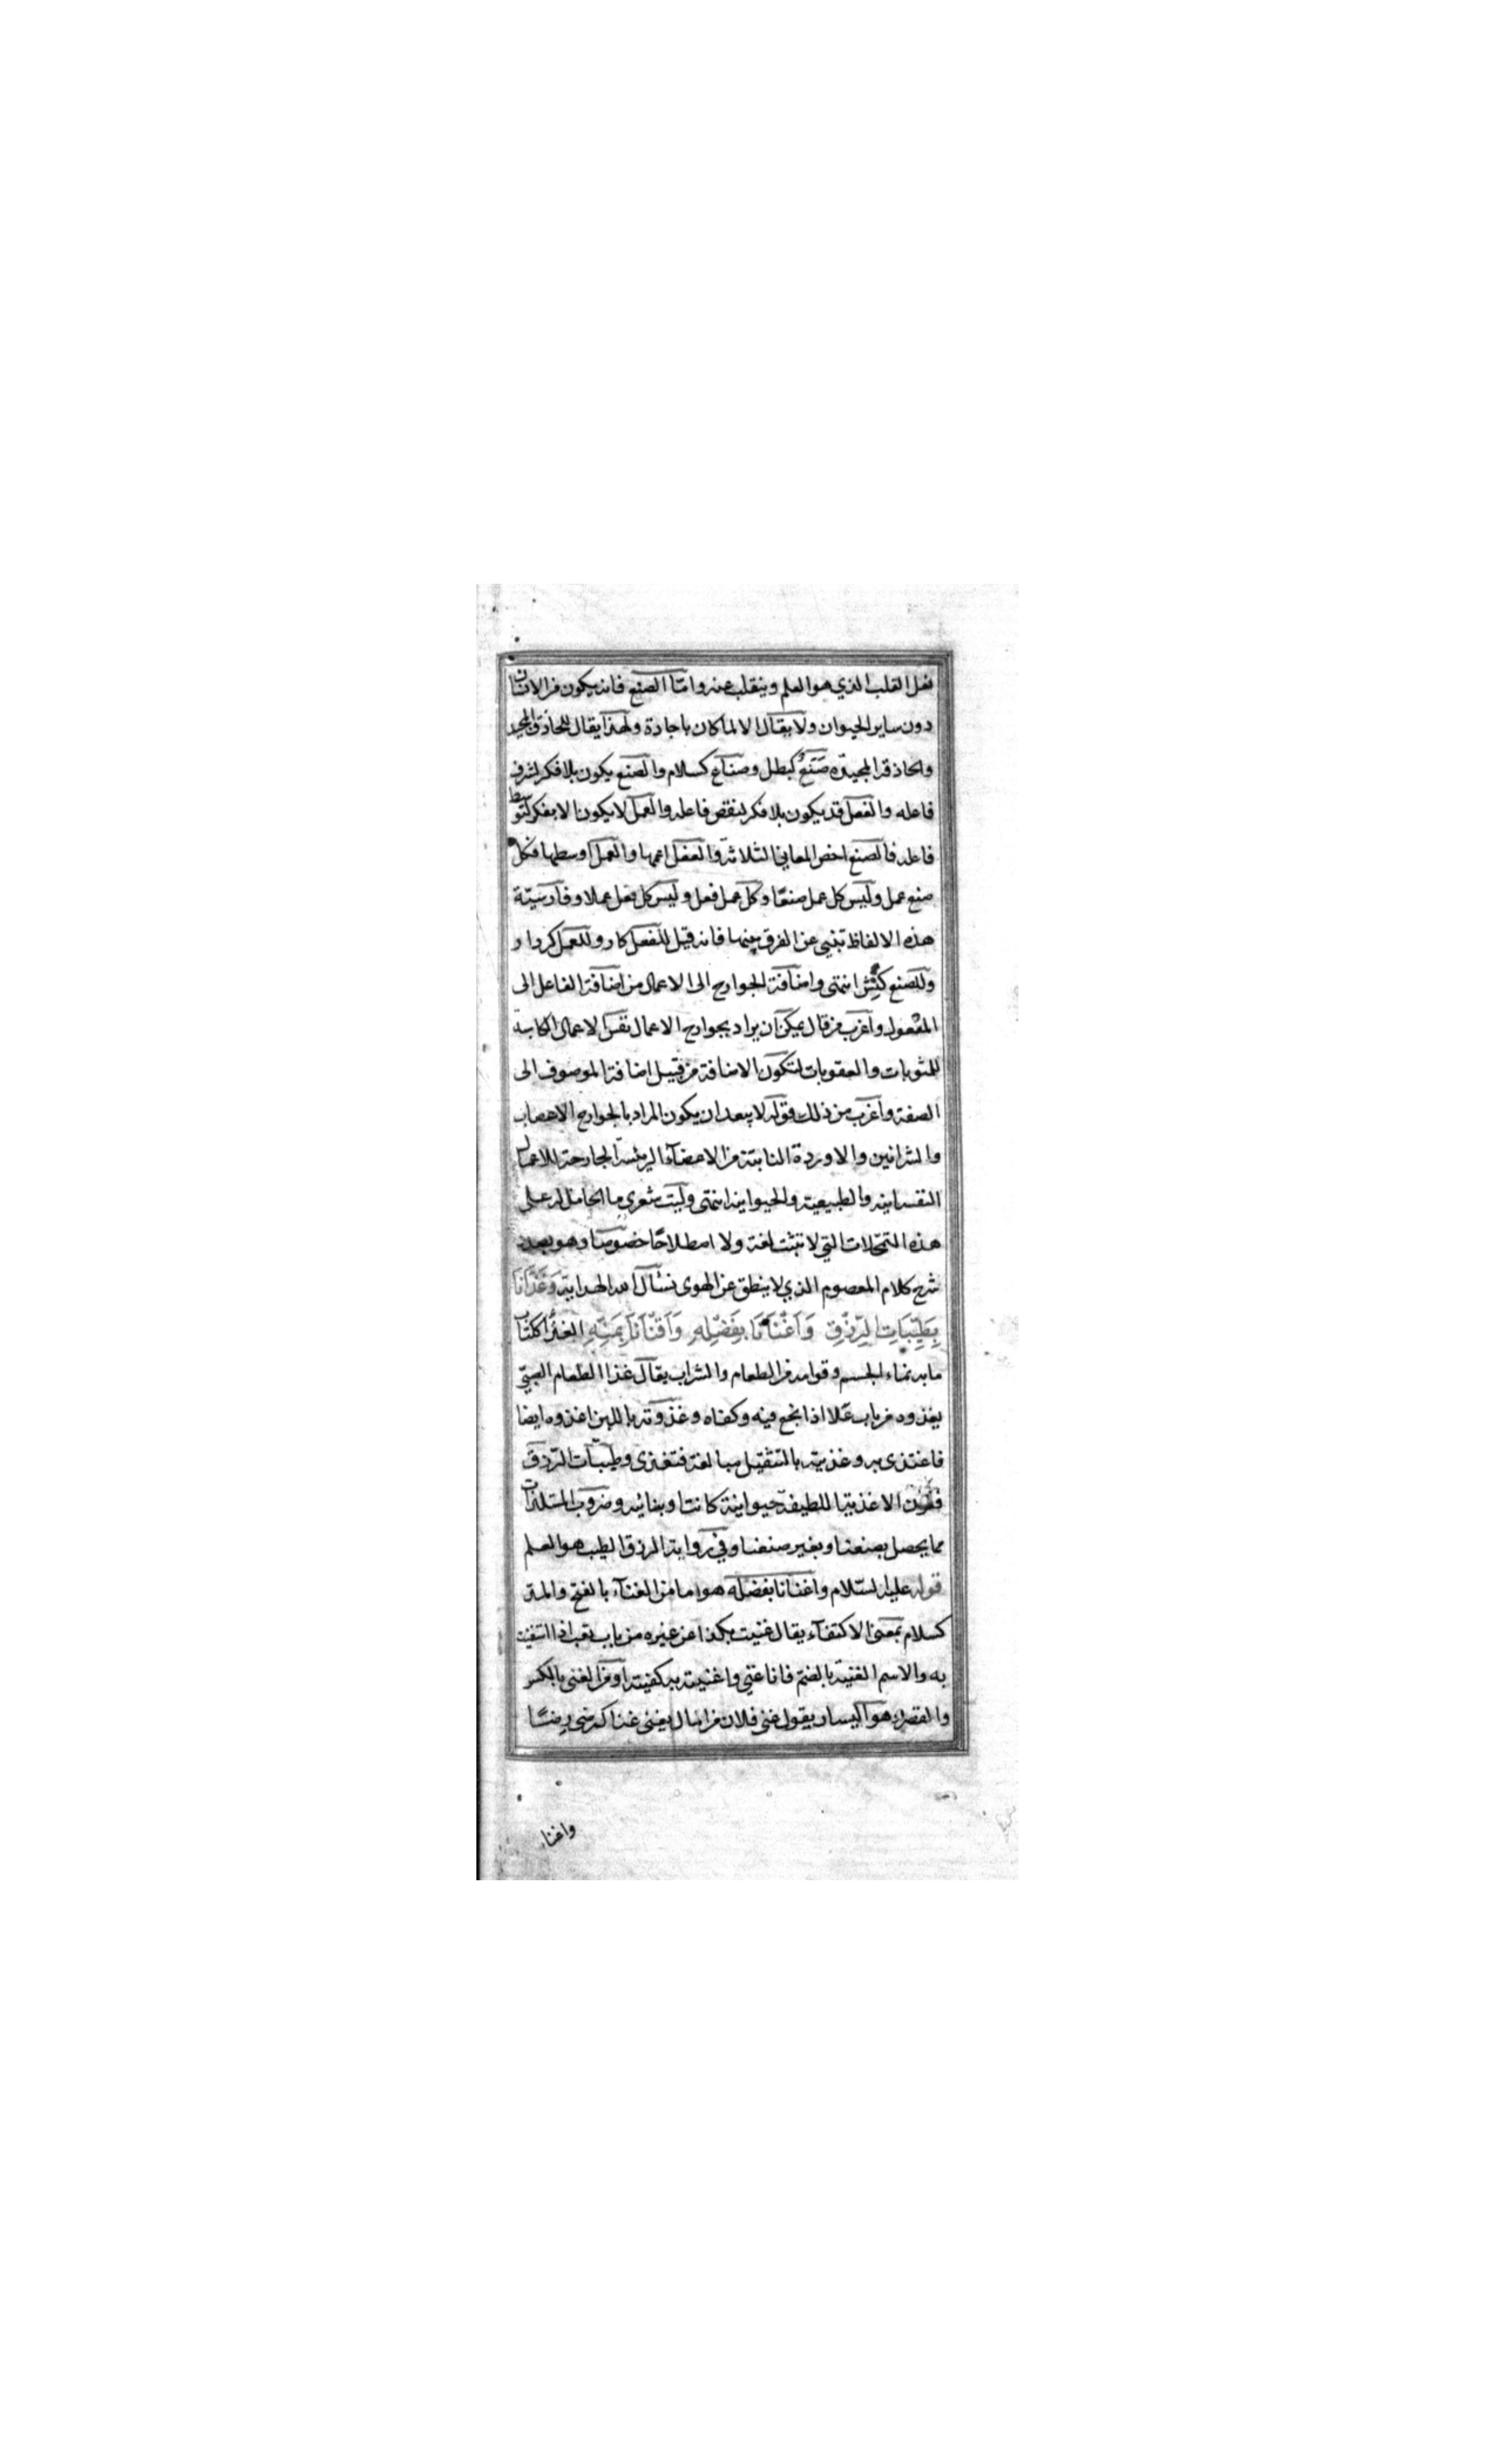 فعل القلب الذي هو العلم وينقلب عنه وامّا الصنع فانه يكون من الانسان
دون ساير الحيوان ولا يقال الا لما كان باجادة ولهذا يقال للحاذق المجيد
والحاذقة المجيدة صَنَعٌ كبطل وصناع كسلام والصنع يكون بلا فكر لشرف
فاعله والفعل قد يكون بلا فكر لنقص فاعله والعمل لا يكون الا بفكر لتوسط
فاعله فالصنع اخص المعاني الثلاثة والفعل اعمها والعمل اوسطها فكل
صنع عمل وليس كل عمل صنعًا وكل عمل فعل وليس كل فعل عملا وفارسيّة
هذه الالفاظ تنبئ عن الفرق بينها فانه قيل للفعل كار وللعمل كردار
وللصنع كنش انتهى واضافة الجوارح الى الاعمال من اضافة الفاعل الى
المفعول واغرب من قال يمكن ان يراد بجوارح الاعمال نفس الاعمال الكاسبة
للمثوبات والعقوبات لتكون الاضافة من قبيل اضافة الموصوف الى
الصفة واغرب من ذلك قوله لا يبعد ان يكون المراد بالجوارح الاعصاب
والشرانين والاوردة النابتة من الاعضآء الرئيسة الجارحة للاعمال
النفسانية والطبيعية والحيوانية انتهى وليت شعري ما الحامل له على
هذه التمحّلات التي لا تثبت لغة ولا اصطلاحًا خصوصا وهو بصدد
شرح كلام المعصوم الذي لا ينطق عن الهوى نسأل الله الهداية وَغَذَّانَا
بِطَيِّبَاتِ الرِّزْقِ وَاَغْنَانَا بِفَضْلِهِ وَاَقْنَانَا بِمَنِّهِ الغذاء ككتاب
ما به نماء الجسم وقوامه من الطعام والشراب يقال غذا الطعام الصبيّ
يغذوه من باب علا اذا نجع فيه وكفاه وغذوته باللبن اغذوه ايضا
فاغتذى به وغذيته بالتثقيل مبالغة فتغذى وطيّبات الرّزق
الاغذية اللطيفة حيوانية كانت او نباتية وضروب المستلذات
مما يحصل بصنعنا وبغير صنعنا وفي رواية الرزق الطيب هو العلم
قوله عليه السّلام واغنانا بفضله هو اما من الغنآء بالفتح والمد
كسلام بمعنى الاكتفآء يقال غنيت بكذا عن غيره من باب تعب اذا استغنيت
به والاسم الغنية بالضمّ فانا غني واغنيته به كفيته او من الغنى بالكسر
والقصر وهو اليسار يقول غني فلان من المال يغنى غنا كرضي رضًا
واغناه